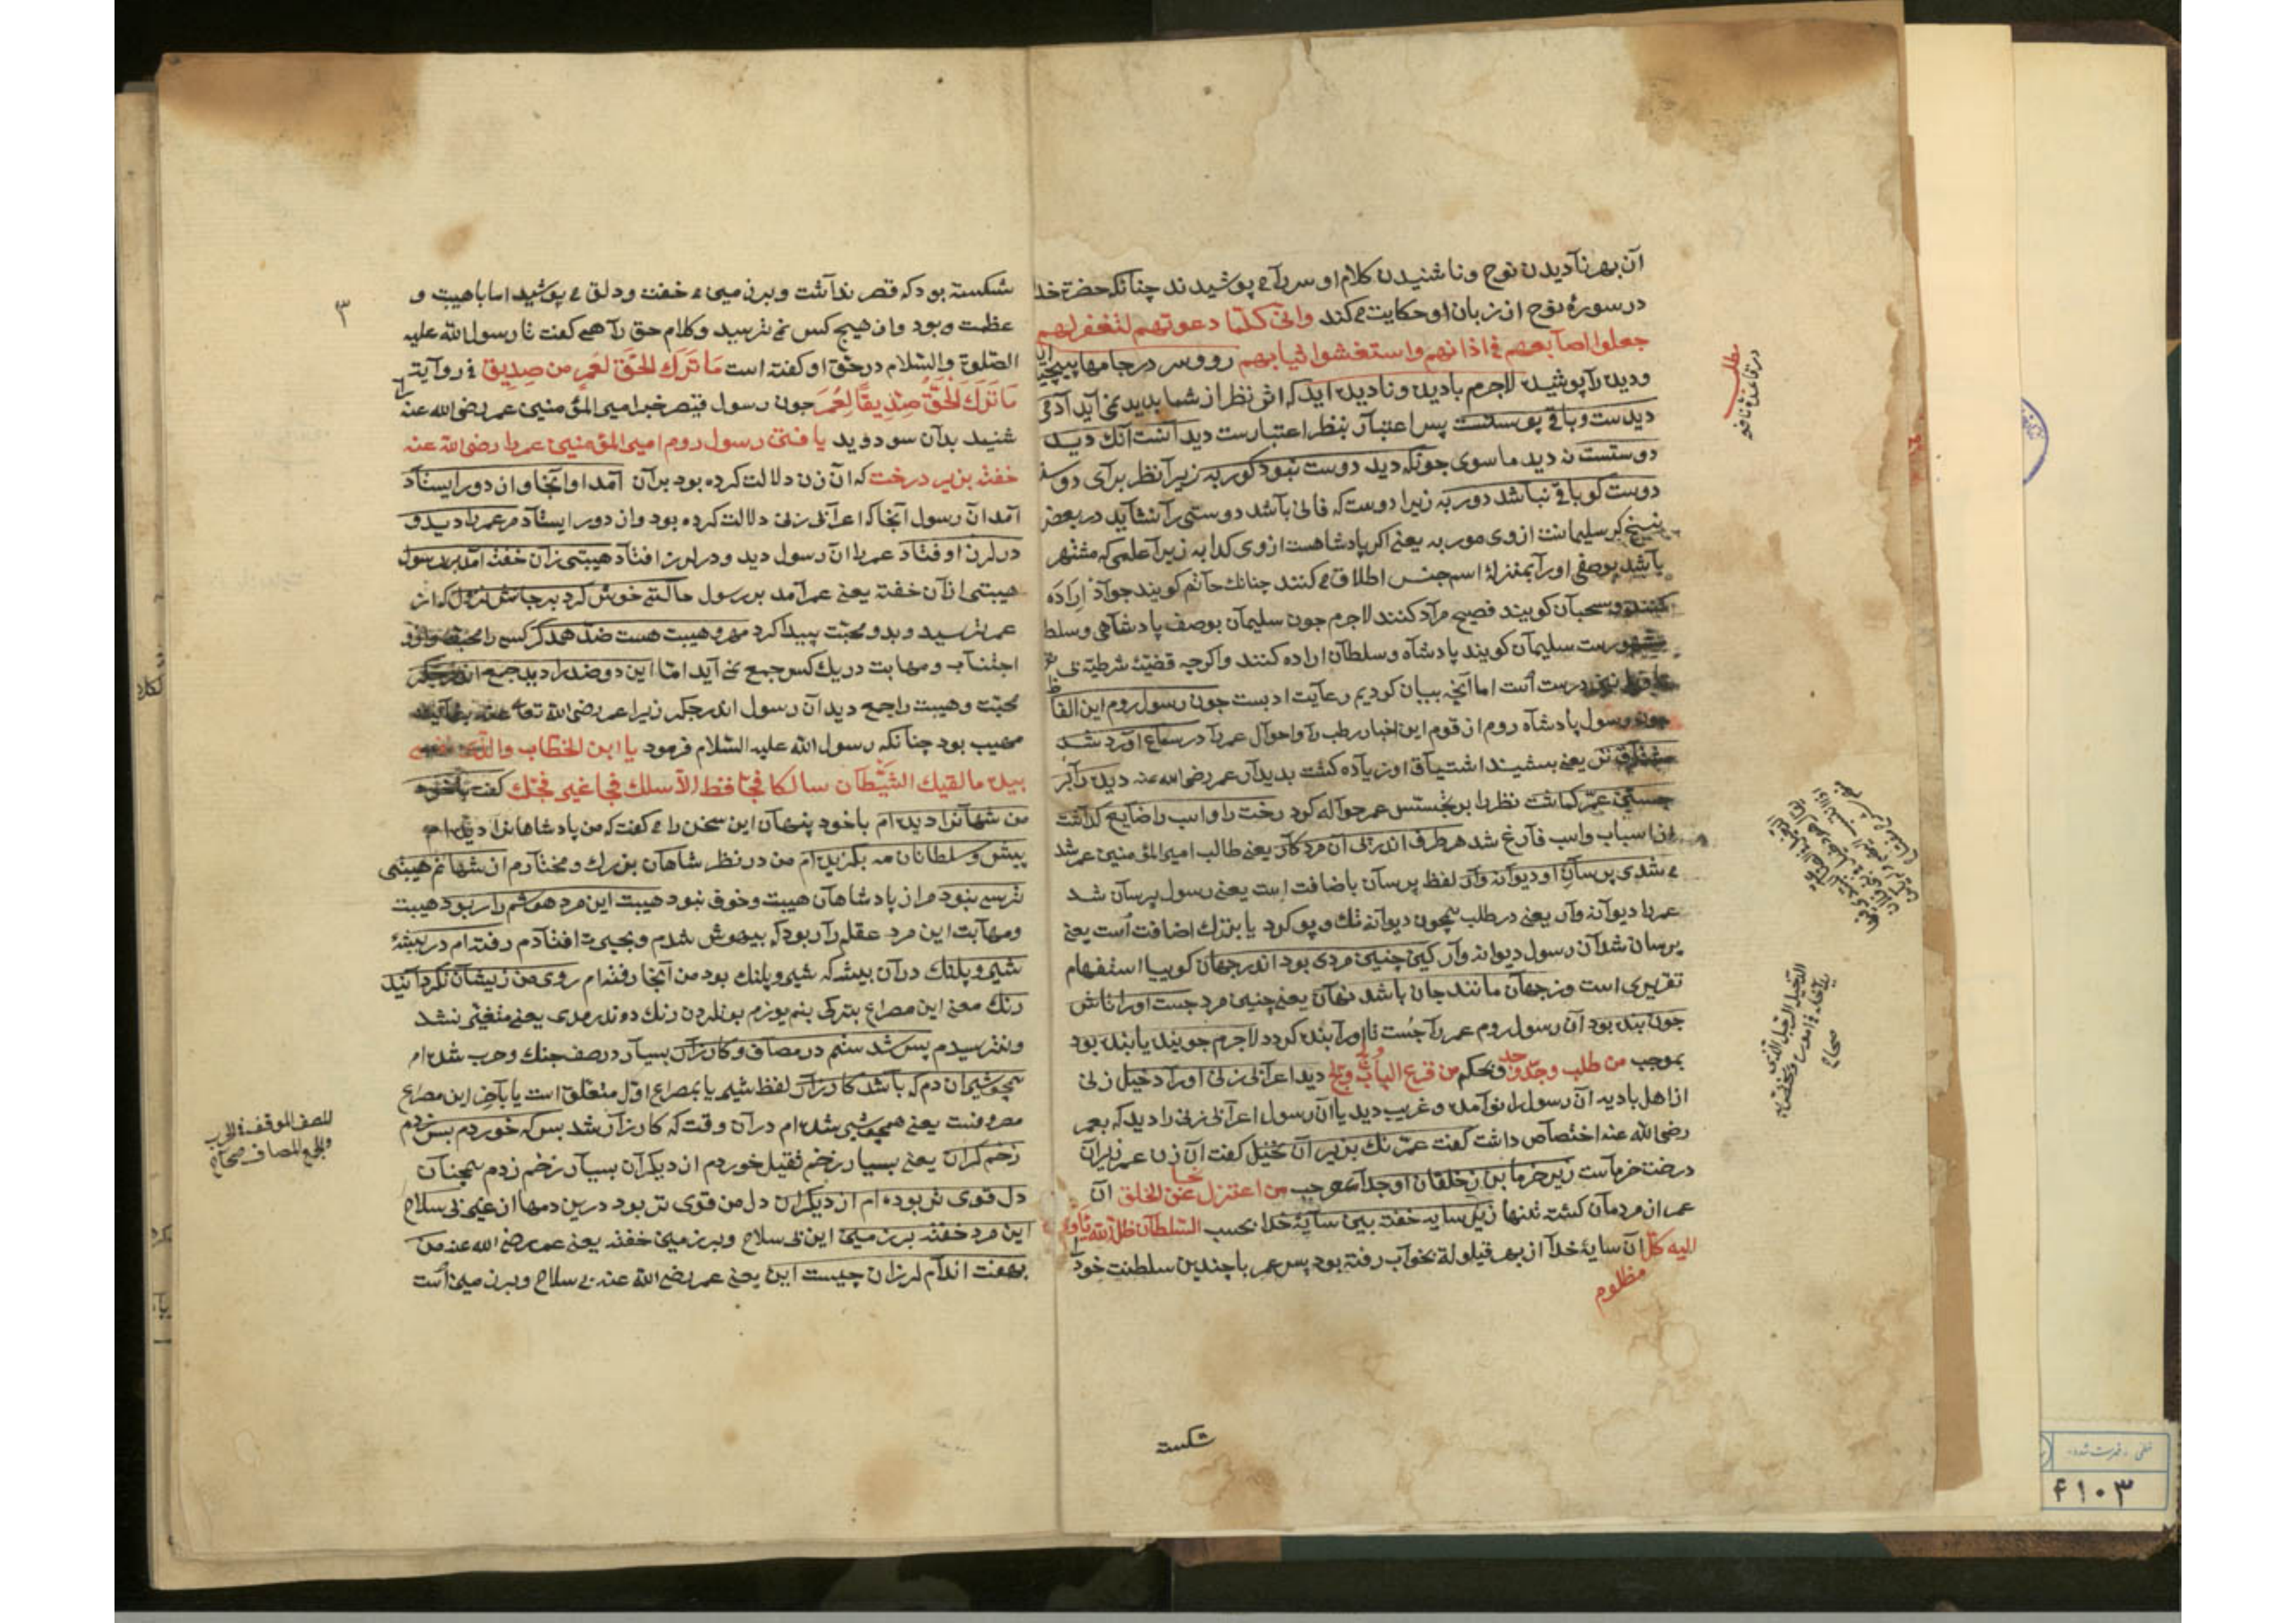 آن بهر نادیدن نوح و ناشنیدن کلام او سر را می پوشیدند چنانکه حضرت خدا
در سورهٔ نوح از زبان او حکایت می کند وانی کلما دعوتهم لتغفر لهم
جعلوا اصابعهم فی اذانهم واستغشوا ثیابهم رو و سر در جامها پیچیده اید
ودیده را پوشیده لاجرم بادیده و نادیده اید که اثر نظر از شما بدید نمی آید آدمی
دیدست و باقی پوستست پس اعتبار بنظر اعتبارست دید آنست آنک دید
دوستست نه دید ماسوی چونکه دید دوست نبود کور به زیرا نظر برای دوست
دوست کو باقی نباشد دور به زیرا دوست که فانی باشد دوستی را نشاید در بعض
نسخ کر سلیمانست ازوی مور به یعنی اکر پادشاهست ازوی کدا به زیرا علمی که مشتهر
باشد بوصفی اورا بمنزلهٔ اسم جنس اطلاق می کنند چنانک حاتم کویند جواد اراده
کنند وسحبان کویند فصیح مراد کنند لاجرم چون سلیمان بوصف پادشاهی وسلط
مشهورست سلیمان کویند پادشاه وسلطان اراده کنند واکرچه قضیهٔ شرطیه
درست است اما آنچه بیان کردیم رعایت ادبست چون رسول روم این الفاظ
چون رسول پادشاه روم از قوم این اخبار رطب را واحوال عمر را در سماع آورد شد
مشتاق تر یعنی بشنید اشتیاق او زیاده کشت بدیدار عمر رضی الله عنه دیده را بر
جستن عمر کماشت نظر را بر جستن عمر حواله کرد رخت را واسب را ضایع کذاشت
از اسباب واسب فارغ شد هر طرف اندر پی آن مرد کار یعنی طالب امیر المؤمنین عمر شد
می شدی پرسان او دیوانه وار لفظ پرسان باضافت است یعنی رسول پرسان شد
عمر را دیوانه وار یعنی در طلب همچون دیوانه تک و پو کرد یا بترک اضافت است یعنی
پرسان شد آن رسول دیوانه وار کین چنین مردی بود اندر جهان کوییا استفهام
تقریری است وز جهان مانند جان باشد نهان یعنی چنین مرد جست اورا تاش
چون بنده بود آن رسول روم عمر را جست تا اورا بنده کردد لاجرم جوینده یابنده بود
بموجب من طلب وجد وجد وبحکم من قرع الباب ولج دید اعرابی زنی اورا دخیل زنی
از اهل بادیه آن رسول را نوآمده وغریب دید یا آن رسول اعرابی زنی را دید که بعمر
رضی الله عنه اختصاص داشت کفت عمر نک بزیر آن نخیل کفت آن زن عمر زیر آن
درخت خرماست زیر خرمابن ز خلقان او جدا بموجب من اعتزل عن الخلق نجا آن
عمر از مردمان کشته تنها زیر سایه خفته بین سایهٔ خدا بحسب السلطان ظل الله یأوی
الیه کل آن سایهٔ خدا از بهر قیلوله بخواب رفته بود پس عمر با چندین سلطنت خود را
مظلوم
شکسته
مطلب
شکسته بود که قصر نداشت وبر زمین می خفت ودلق می پوشید اما باهیبت و
عظمت بود واز هیچ کس نمی ترسید وکلام حق را همی کفت تا رسول الله علیه
الصلوة والسلام در حق او کفته است ما ترک الحق لعمر من صدیق فی روایة
ما ترک الحق صدیقا لعمر چون رسول قیصر خبر امیر المؤمنین عمر رضی الله عنه
شنید بدان سو دوید یافتن رسول روم امیر المؤمنین عمر را رضی الله عنه
خفته بزیر درخت که آن زن دلالت کرده بود بر آن آمد او آنجا واز دور ایستاد
آمد آن رسول آنجا که اعرابی زنی دلالت کرده بود واز دور ایستاد مر عمر را دید و
در لرز اوفتاد عمر را آن رسول دید ودر لرز افتاد هیبتی زان خفته آمد بر رسول
هیبتی از آن خفته یعنی عمر آمد بر رسول حالتی خوش کرد بر جانش نزول که از
عمر ترسید وبدو محبت پیدا کرد مهر وهیبت هست ضد همدکر کسی را محبت
اجتناب ومهابت در یک کس جمع نمی آید اما این دو ضد را دید جمع اندر جکر
محبت وهیبت را جمع دید آن رسول اندر جکر زیرا عمر رضی الله تعالی عنه بغایت
مهیب بود چنانکه رسول الله علیه السلام فرمود یا ابن الخطاب والذی نفسی
بیده ما لقیک الشیطان سالکا فجا قط الا سلک فجا غیر فجک کفت باخود
من شهانرا دیده ام باخود پنهان این سخن را می کفت که من پادشاهانرا دیده ام
پیش سلطانان مه بکزیده ام من در نظر شاهان بزرک ومختارم از شهانم هیبتی
ترسی نبود مرا از پادشاهان هیبت وخوف نبود هیبت این مرد هوشم را ربود هیبت
ومهابت این مرد عقلم را ربود که بیهوش شدم وبحیرت افتادم رفته ام در بیشهٔ
شیر و پلنک در آن بیشه که شیر و پلنک بود من آنجا رفته ام روی من زیشان نکردانید
رنک معنی این مصراع بترکی بنم یوزم بونلردن رنک دوندرمدی یعنی متغیر نشد
ونترسیدم بس شدستم در مصاف وکارزار بسیار در صف جنک وحرب شده ام
همچو شیر آن دم که باشد کارزار لفظ شیر یا بمصراع اول متعلق است یا بآخر این مصراع
مصروفست یعنی همچو شیر شده ام در آن وقت که کارزار شد بس که خوردم بس زدم
زخم کران یعنی بسیار زخم ثقیل خوردم از دیکران بسیار زخم زدم همچنان
دل قوی تر بوده ام از دیکران دل من قوی تر بود درین دمها از غیر بی سلاح
این مرد خفته بر زمین این بی سلاح وبر زمین خفته یعنی عمر رضی الله عنه من
بهفت اندام لرزان چیست این یعنی عمر رضی الله عنه بی سلاح وبر زمین است
۳
المصف الموقف فی الحرب
والجمع المصاف صحاح
۴۱۰۳